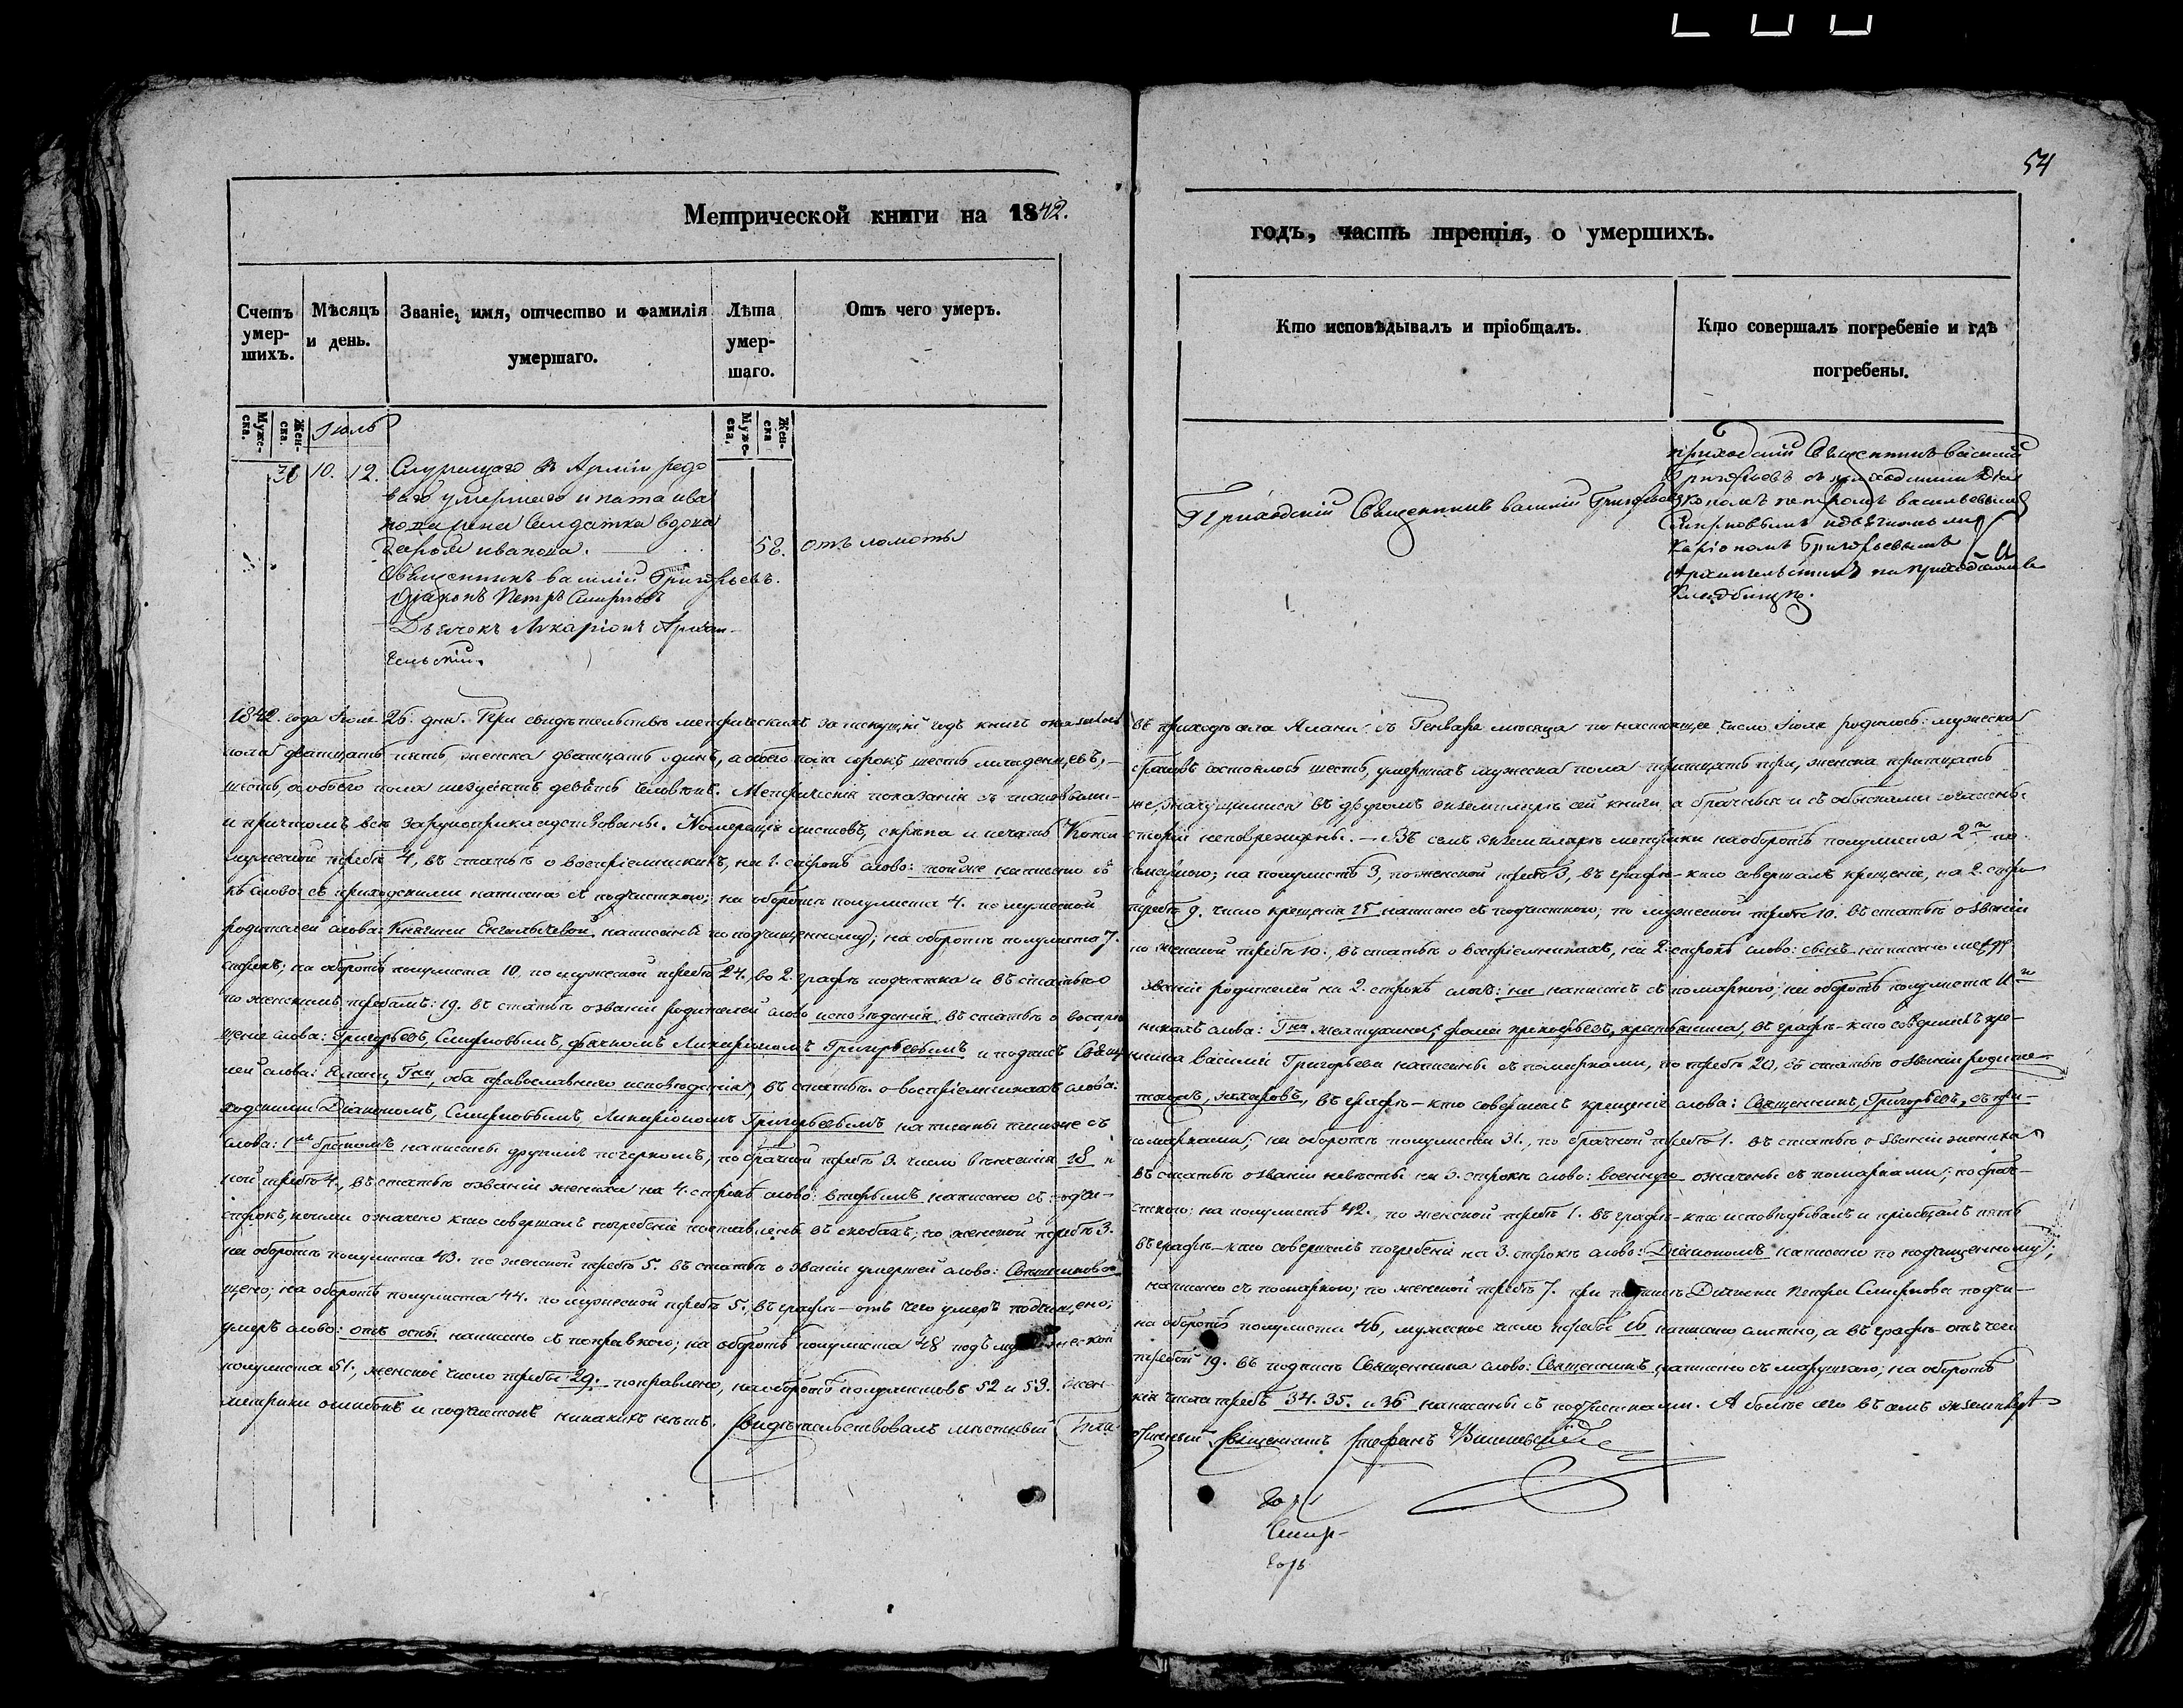 54
Метрической книги на 1842.
годъ, часть третія, о умершихъ.
Счетъ умер-шихъ.
Мѣсяцъ и день.
Званіе, имя, отчество и фамилія умершаго.
Лѣта умер-шаго.
Отъ чего умеръ.
Кто исповѣдывалъ и пріобщалъ.
Кто совершалъ погребеніе и гдѣ погребены.
Муже-ска.
Жен-ска.
Іюль
Муже-ска,
Жен-ска
36 10. 12.
Служащаго въ Арміи
умершаго
жена Салдатка
иванова.
58.
отъ ломоты
Священникъ василій Григорьевъ.
Діаконъ Петръ Смирновъ
Дьячекъ Илларіонъ
Приходскій Священникъ василій Григорьевъ
приходскій Священникъ василій
Григорьевъ съ приходскими Діа
кономъ петромъ васильевымъ
Смирновымъ
Григорьевымъ
на приходскомъ
кладбищѣ.
1842. года Іюля 26. дня. При свидѣтельствѣ метрическихъ за текущій годъ книгъ оказалось
въ приходѣ села съ Генваря мѣсяца по настоящее число Іюля родилось: мужеска
пола двадцать пять женска двадцать одинъ, а обоего пола сорокъ шесть младенцевъ,
браковъ состоялось шесть, умершихъ мужеска пола тритцать три, женска тритцать
шесть, а обоего пола шездесятъ девять человѣкъ. Метрическія показанія съ таковыми-
же, значущимися въ другомъ экземплярѣ сей книги, а брачныя и съ обысками согласны
и причтомъ всѣ зарукоприкладствованы. Номерація листовъ, скрѣпа и печать Конси
сторіи неповреждены. — Въ семъ экземплярѣ метрики на оборотѣ полулиста 2го по
мужеской требѣ 4, въ статьѣ о воспріемникахъ, на 1. строкѣ слово: той же написано съ
помаркою; на полулистѣ 3, по женской требѣ 3, въ графѣ—кто совершалъ крещеніе, на 2. стро
кѣ слово: съ приходскими написано съ подчисткою; на оборотѣ полулиста 4. по мужеской
требѣ 9. число крещенія 25 написано съ подчисткою; по мужеской требѣ 10. въ статьѣ о званіи
родителей слова: Княгини Енгалычевой написаны по подчищенному; на оборотѣ полулиста 7.
по женской требѣ 10., въ статьѣ о воспріемникахъ, на 2. строкѣ слово: сынъ написано между
строкъ; на оборотѣ полулиста 10. по мужеской требѣ 24., во 2. графѣ подчистка и въ статьѣ о
званіи родителей на 2. строкѣ слогъ: на написанъ съ помаркою; на оборотѣ полулиста 11го
по женскимъ требамъ: 19. въ статьѣ о званіи родителей слово исповѣданія, въ статьѣ о воспріем
никахъ слова: въ графѣ—кто совершалъ кре-
щеніе слова: Григорьевъ, Смирновымъ, Григорьевымъ и подпись Свящ
нника Василія Григорьева написаны съ помарками, по требѣ 20, въ статьѣ о званіи родите-
лей слова: оба православнаго исповѣданія, въ статьѣ о воспріемникахъ слова:
захаровъ, въ графѣ—кто совершалъ крещеніе слова: Священникъ, Григорьевъ, съ при-
ходскими Діакономъ, Смирновымъ, Григорьевымъ написаны также съ
помарками; на оборотѣ полулиста 31., по брачной требѣ 1. въ статьѣ о званіи жениха
слова: 1мъ бракомъ написаны другимъ почеркомъ, по брачной требѣ 3. число вѣнчанія 18 и
въ статьѣ о званіи невѣсты на 3. строкѣ слово: военнаго означены съ помарками; по брач-
ной требѣ 4., въ статьѣ о званіи жениха на 4. строкѣ слово: вторымъ написано съ подчи-
сткою: на полулистѣ 42., по женской требѣ 1. въ графѣ—кто исповѣдывалъ и пріобщалъ пять
строкъ, коими означено кто совершалъ погребеніе поставлены въ скобахъ, по женской требѣ 3.
въ графѣ—кто совершалъ погребеніе на 3. строкѣ слово: Діакономъ написано по подчищенному;
на оборотѣ полулиста 43. по женской требѣ 5. въ статьѣ о званіи умершей слово:
написано съ помаркою; по женской требѣ 7. при подписи Діакона Петра Смирнова подчи-
щено; на оборотѣ полулиста 44. по мужеской требѣ 5., въ графѣ—отъ чего умеръ подчищено;
на оборотѣ полулиста 46, мужеское число требы 16 написано а въ графѣ отъ чего
умеръ слово: отъ оспы написано съ поправкою; на оборотѣ полулиста 48 подъ
требой 19. въ подписи Священника слово: Священникъ написано съ на оборотѣ
полулиста 51., женское число требы 29. поправлено, на оборотѣ полулистовъ 52 и 53. жен-
скія числа требъ 34. 35. и 36 написаны съ подчистками. А болѣе сего въ семъ экземплярѣ
метрики ошибокъ и подчистокъ никакихъ нѣтъ. Свидѣтельствовалъ мѣстный Бла
гочинный Священникъ Стефанъ